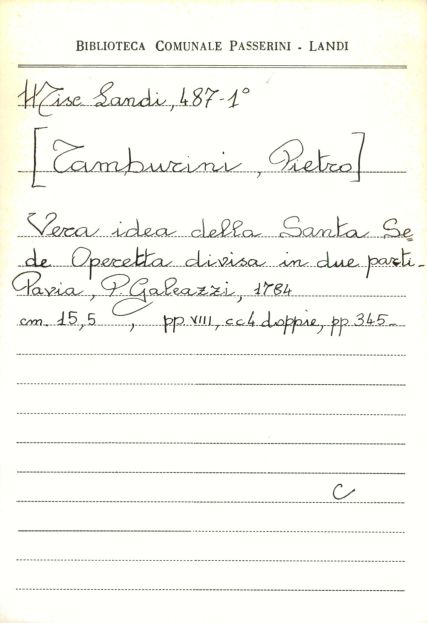 BIBLIOTECA COMUNALE PASSERINI - LANDI
Misc Landi, 487-1°
[Tamburini, Pietro]
Vera idea della Santa Se=
de Operetta divisa in due parti-
Pavia, P. Galeazzi, 1784
cm. 15,5 , pp. VIII, cc4 doppie, pp. 345-
C